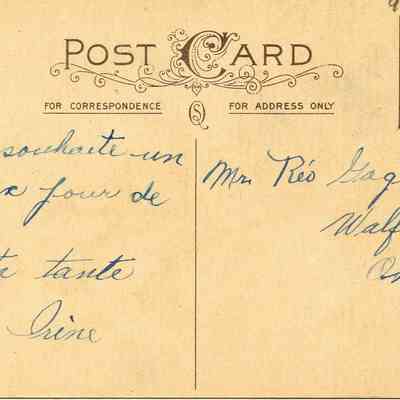 POST CARD
FOR CORRESPONDENCE
FOR ADDRESS ONLY
souhaite un
x jour de
ta tante
Irène
Mr. Réo Gag
Walf
On